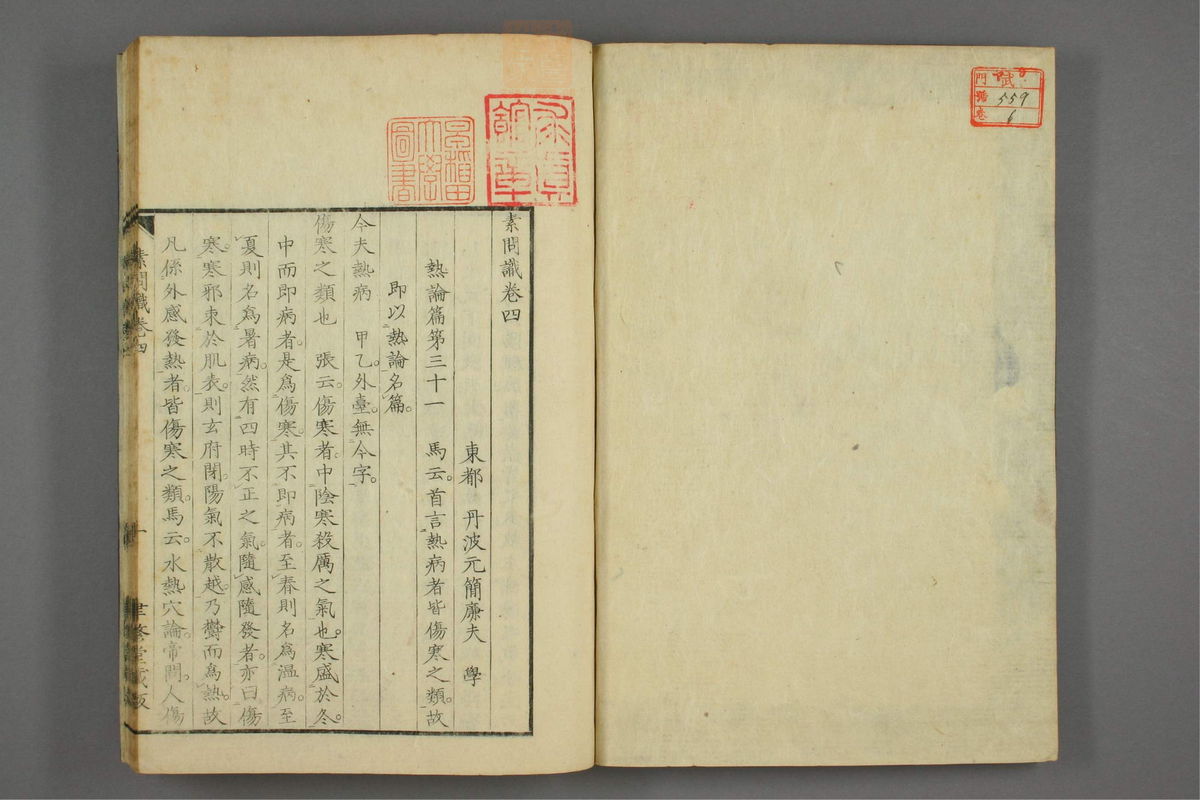 門 武
號 559
卷 6
素問識卷四
東都 丹波元簡廉夫 學
熱論篇第三十一 馬云。首言熱病者皆傷寒之類。故
即以熱論名篇。
今夫熱病 甲乙。外臺。無今字。
傷寒之類也 張云。傷寒者。中陰寒殺厲之氣也。寒盛於冬。
中而即病者。是爲傷寒。其不即病者。至春則名爲溫病。至
夏則名爲暑病。然有四時不正之氣。隨感隨發者。亦曰傷
寒。寒邪束於肌表。則玄府閉。陽氣不散越。乃鬱而爲熱。故
凡係外感發熱者。皆傷寒之類。馬云。水熱穴論。帝問。人傷
素問識卷四
一
聿修堂藏版
早稻田
大學
圖書